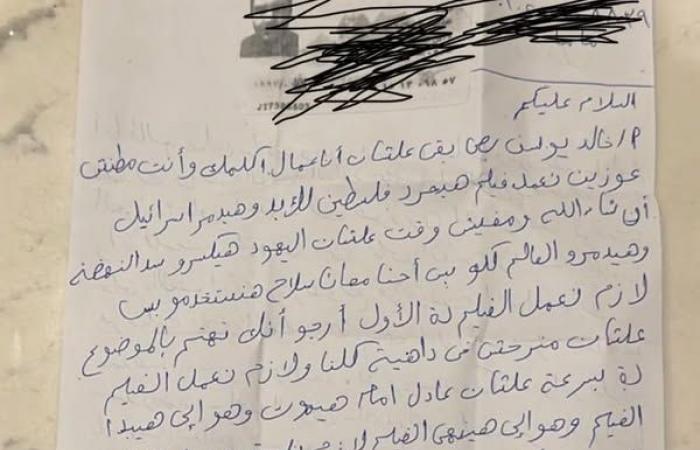 السلام عليكم
م/ خالد يوسف بص بقى علشان أنا عمال أكلمك وأنت مطنش
عوزين نعمل فيلم هيحرر فلسطين للابد وهيدمر اسرائيل
أن شاء الله ومفيش وقت علشان اليهود هيكسرو سد النهضة
وهيدمرو العالم كلو بس أحنا معانا سلاح هنستخدمو بس
لازم نعمل الفيلم دة الأول أرجو أنك تهتم بالموضوع
علشان منرحش فى داهية كلنا ولازم نعمل الفيلم
دة بسرعة علشان عادل امام هيموت وهو إلى هيبدأ
الفيلم وهو إلى هينهى الفيلم